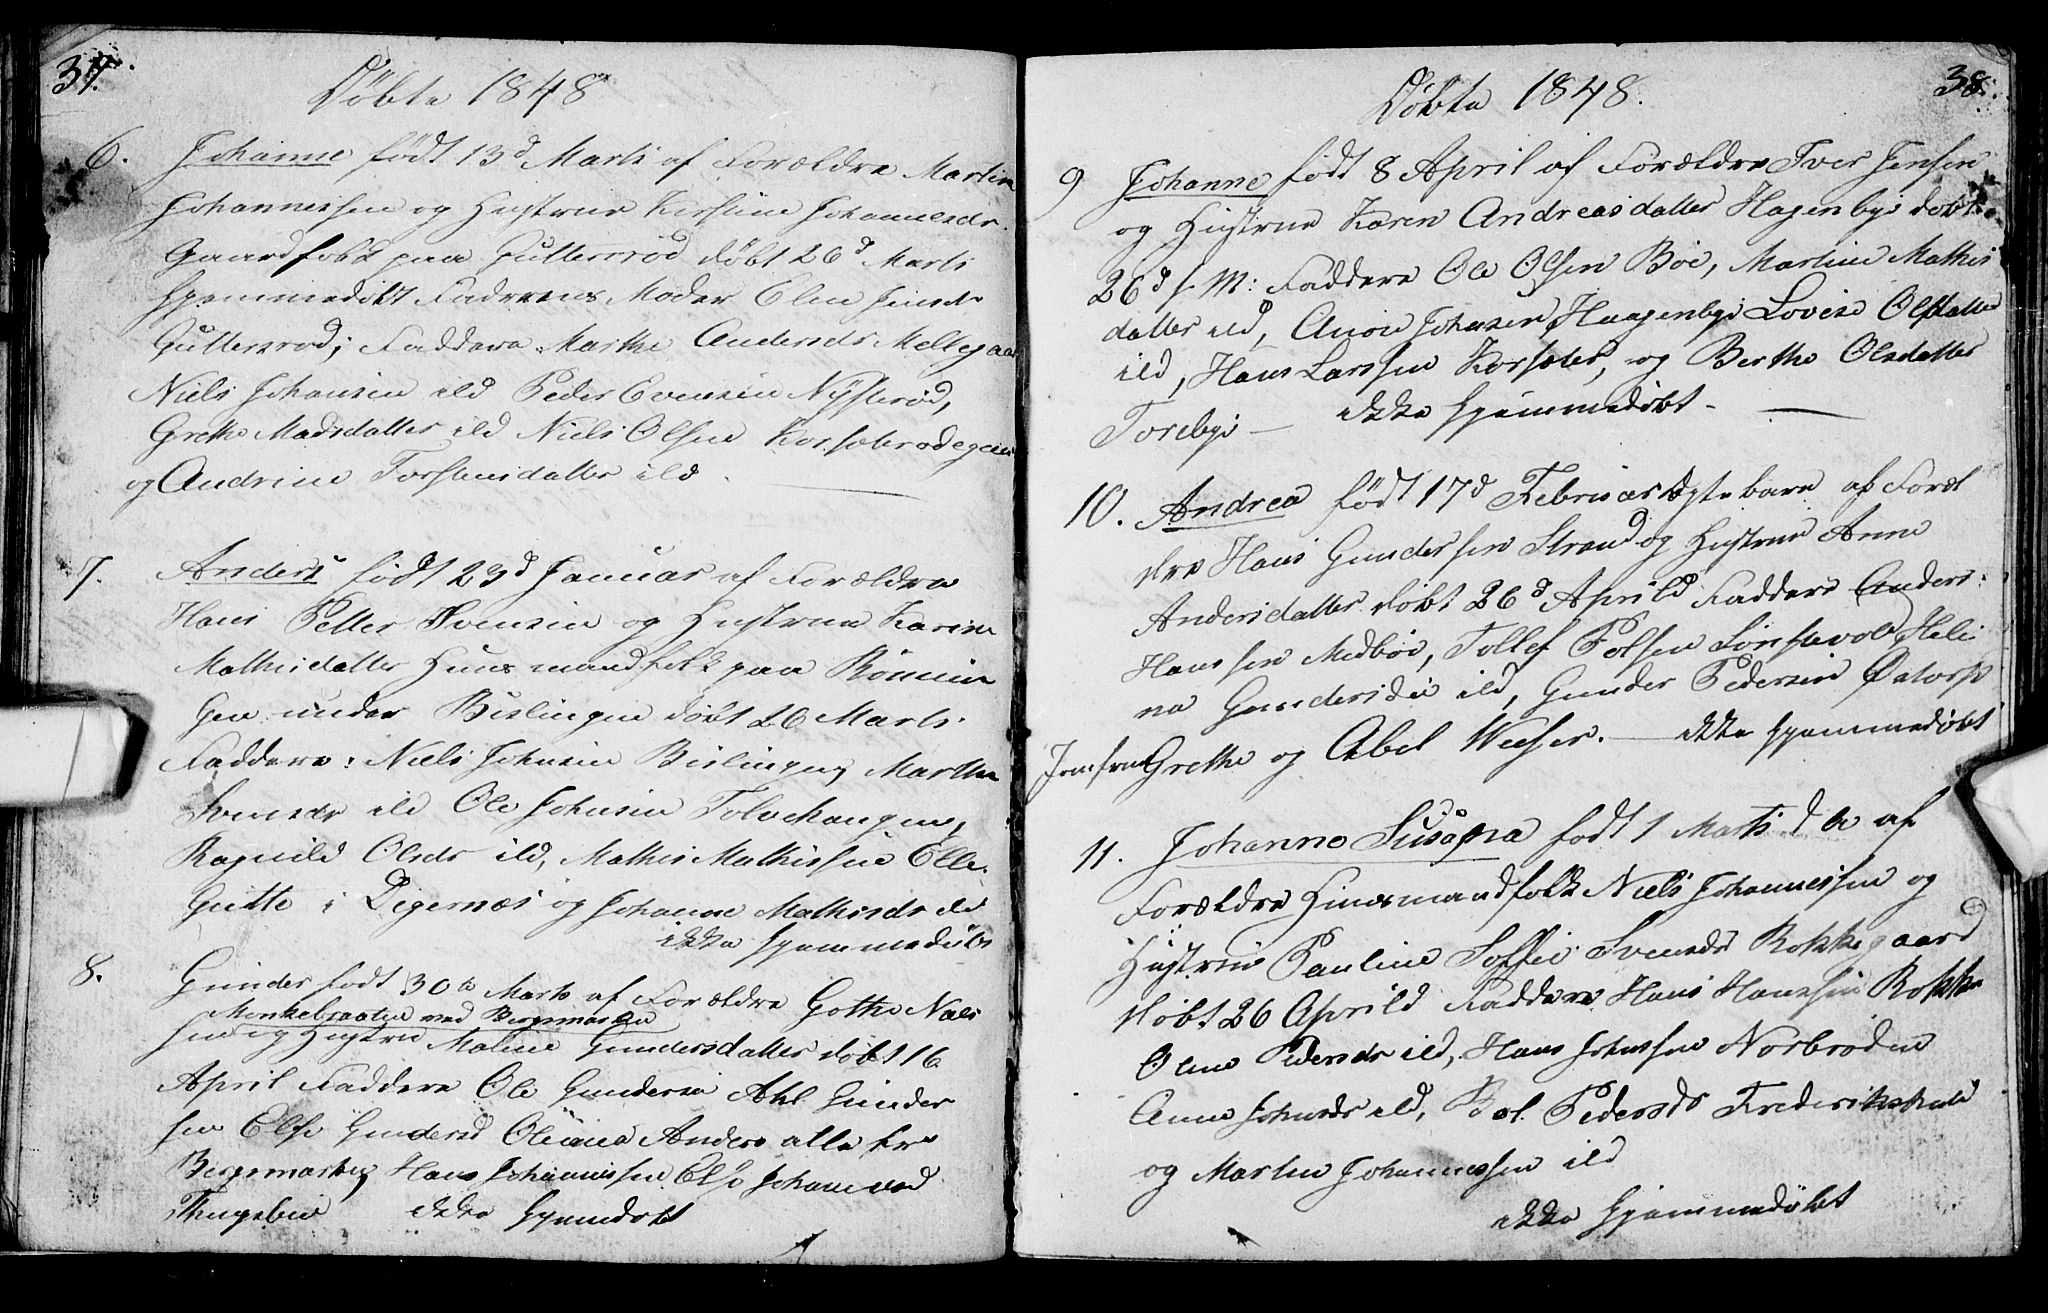 37.
Döbte 1848
6. Johanne födt 13d Marts af Forældre Martin
Johannessen og Hustrue Kirstine Johannesdr.
Gaardfolk paa Guttersröd döbt 26d Marts
hjemmedöbt Faderens Moder Elen Jensdr
Guttersröd; Faddere Marthe Andersdr Mellegaar
Niels Johansen ild Peder Evensen Nysteröd,
Grethe Madsdatter ild Niels Olsen Korsæterødegaar
og Andrine Torstensdatter ild.
7. Anders födt 23d Januar af Forældre
Hans Petter Svensen og Hustrue Karine
Mathisdatter Huusmandfolk paa Rönnin
gen under Bislingen döbt 26 Marts.
Faddere: Niels Johnsen Bislingen, Marthe
Svensdr ild Ole Johnsen Tolvehaugen,
Ragnild Olsdr ild, Mathis Mathissen Elle,
Gutte i Degernæs og Johanne Mathisdr ild
ikke hjemmedöbt
8. Gunder födt 30te Marts af Forældre Gothe Niels
Monkebraaten ved Bergsmarken
sen og Hustru Maline Gundersdatter döbt 16
April Faddere Ole Gundersen Axel Gunder
sen Else Gundersd Oliane Anders alle fra
Bergsmarken, Hans Johannissen Else Johane ved
Thugebie ikke hjemedöbt
38.
Döbte 1848.
9 Johanne födt 8 April af Forældre Iver Jensen
og Hustrue Karen Andreasdatter Hagenbye döbt
26d s. M: Faddere Ole Olsen Böe, Martine Mathis
datter ild, Anon Johnsen Haagenbye Lovise Olsdatter
ild, Hans Larssen Korsæter, og Berthe Olsdatter
Torebye — ikke hjemmedöbt —
10. Andrea födt 17d Februar ægtebarn af Foræl
dre Hans Gundersen Strand og Hustrue Anne
Andersdatter döbt 26d Aprild Faddere Anders
Hanssen Medböe, Tollef Polsen Lönstevold, Heli
na Gundersdr ild, Gunder Pedersen Ödtorp
Jomfrue Grethe og Abel Weeser. — ikke hjemmedöbt
11. Johanne Susana födt 1 Marts d. A af
Forældre Huusmandfolk Niels Johannessen og
Hustrue Pauline Soffie Svensdr Rokkegaard
döbt 26 Aprild Faddere Hans Hanssen Rokke
Oline Pedersdr ild, Hans Johnssen Norbröden
Anne Johnsdr ild, Pedersdr Frederikshald
og Martin Johannessen ild
ikke hjemmedöbt